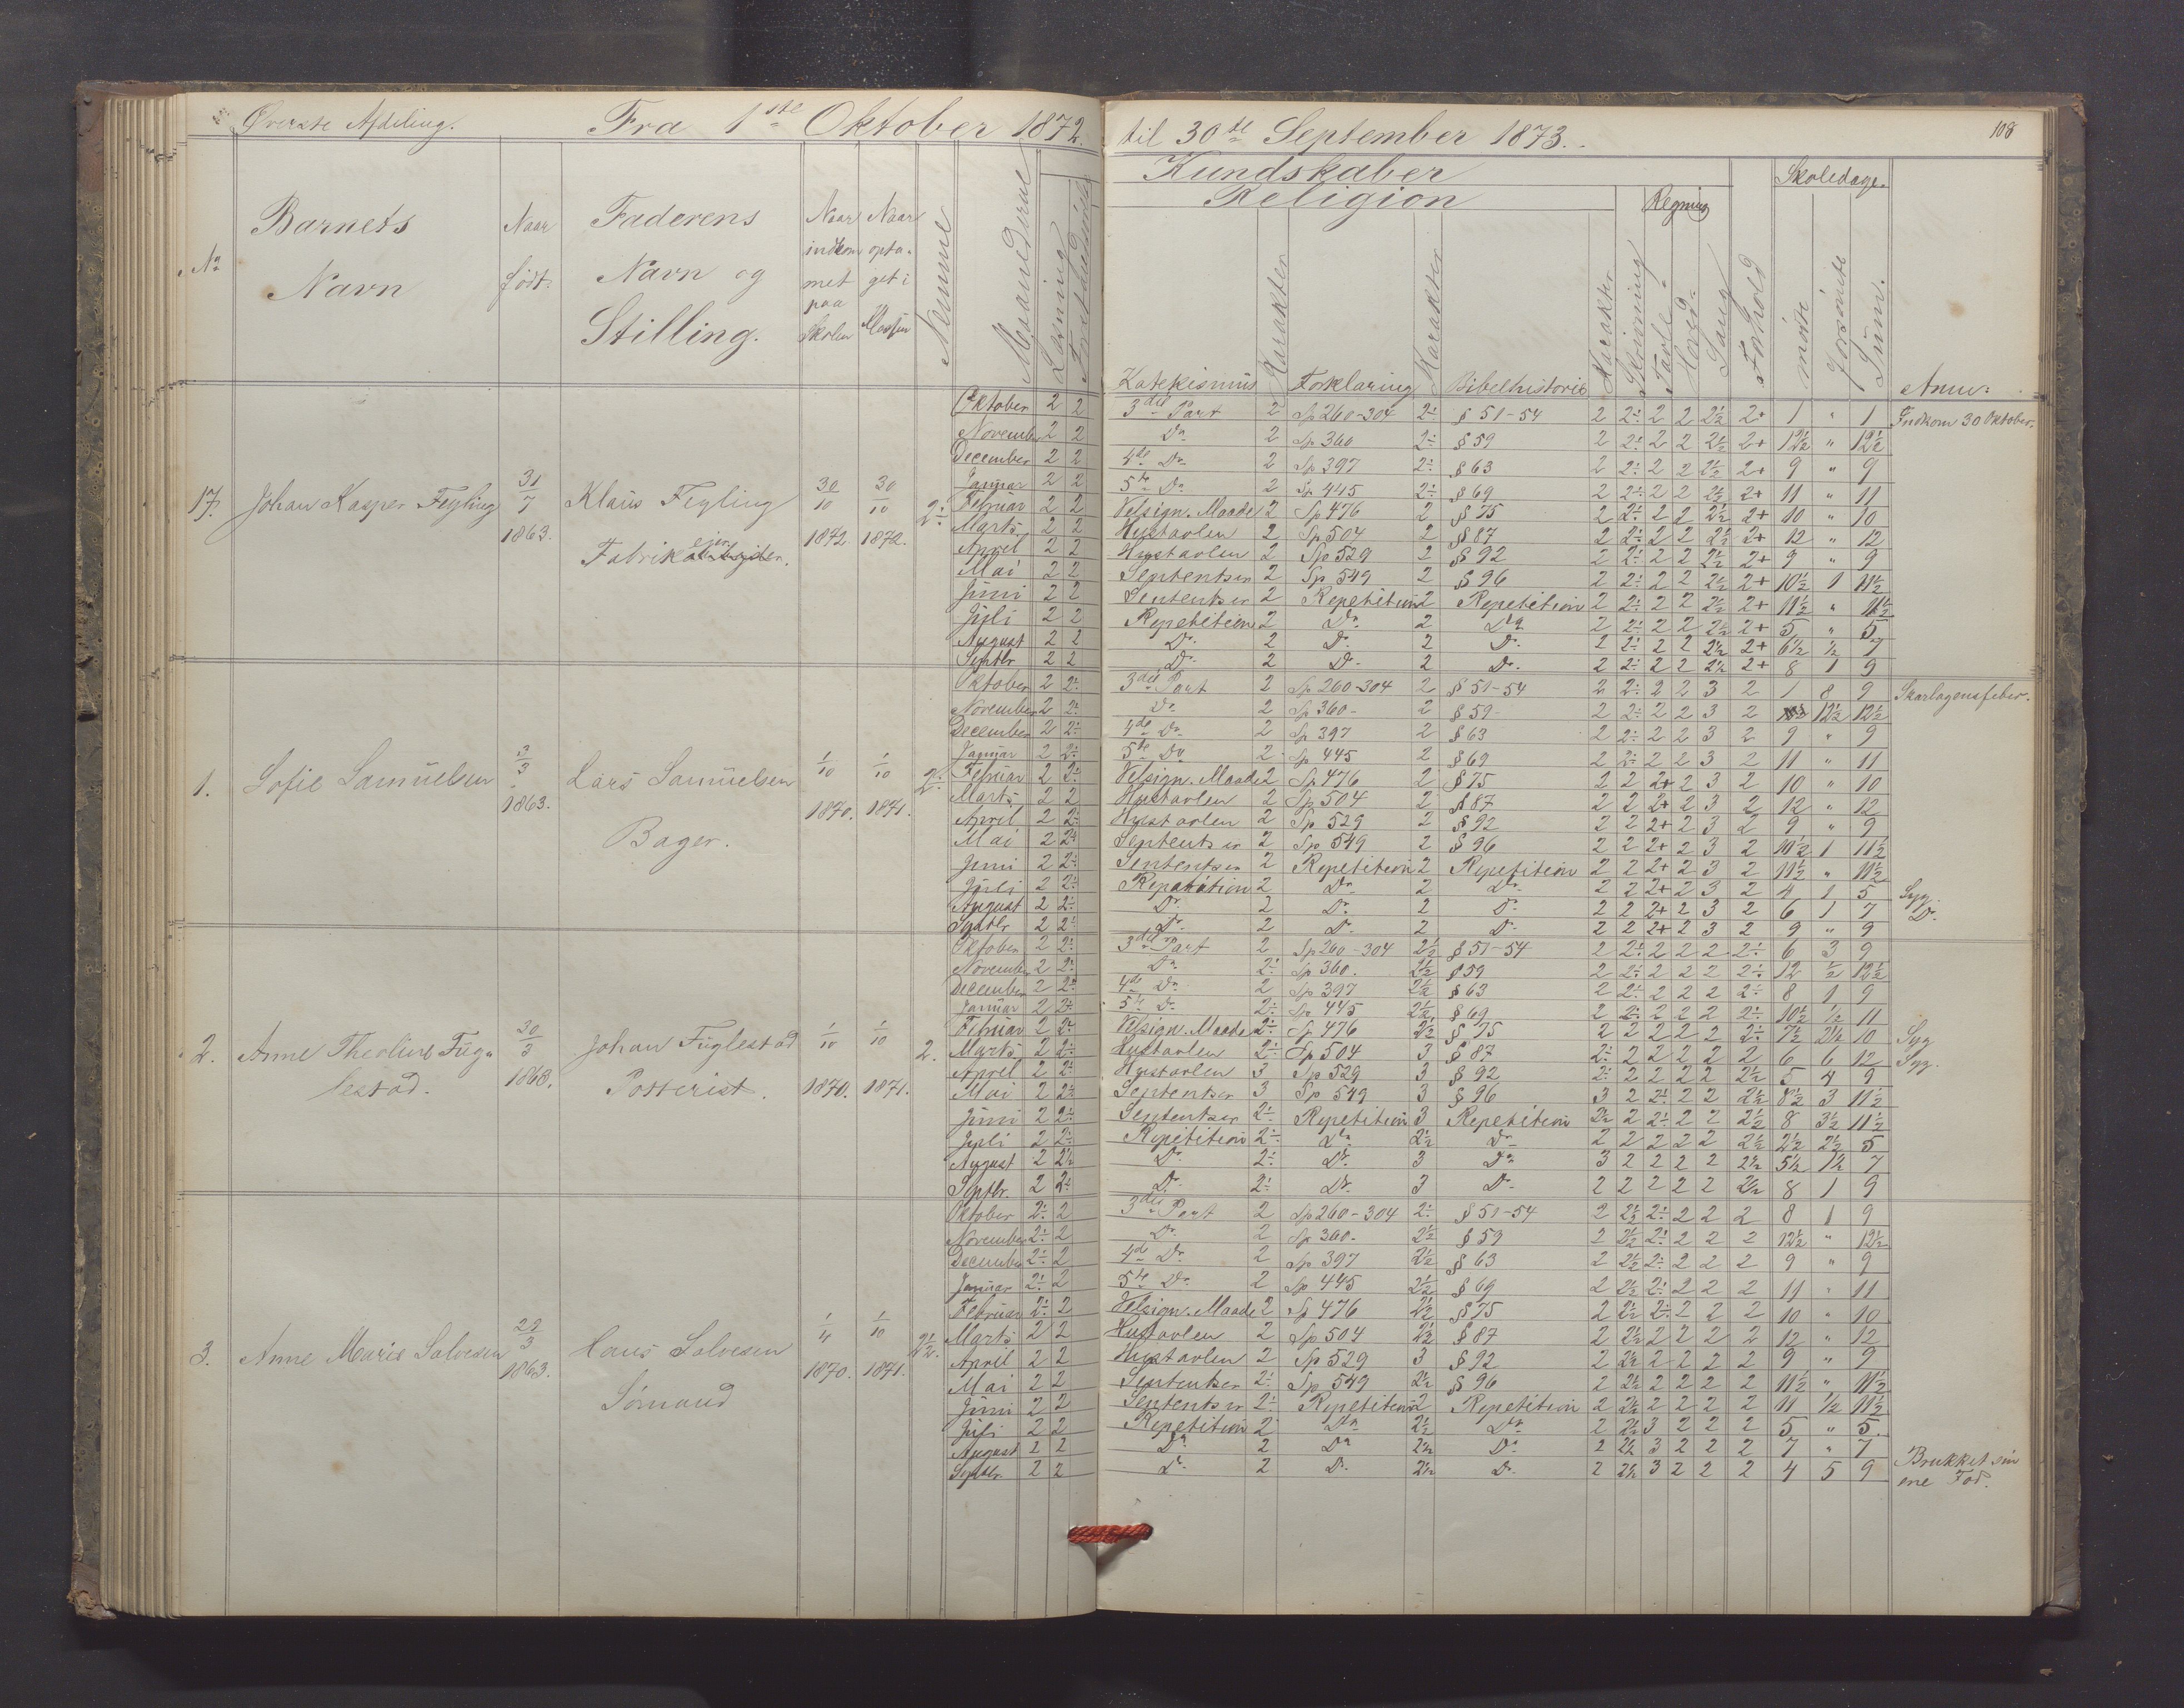 Øverste Afdeling. Fra 1ste Oktober 1872. til 30te September 1873. 108
Kundskaber Skoledage.
Religion Regning
No Barnets Navn Naar født. Faderens Navn og Stilling. Naar indkommet paa Skolen Naar optaget i Klassen Nemme Maanederne Læsning Katekismus Karakter Forklaring Karakter Bibelhistorie Karakter Skrivning Tavle- Hoved- Sang Forhold mødte forsømte Sum. Anm:
17. Johan Kasper Feyling 31/7 1863. Klaus Feyling Fabrikeier 30/10 1872. 30/10 1872. 2÷
Oktober 2 2 3die Part 2 Sp 260-304 2÷ § 51-54 2 2÷ 2 2 2½ 2+ 1 " 1 Indkom 30 Oktober.
November 2 2 Do 2 Sp 360 2÷ § 59 2 2÷ 2 2 2½ 2+ 12½ " 12½
December 2 2 4de Do 2 Sp 397 2÷ § 63 2 2÷ 2 2 2½ 2+ 9 " 9
Januar 2 2 5te Do 2 Sp 445 2÷ § 69 2 2÷ 2 2 2½ 2+ 11 " 11
Februar 2 2 Velsign. Maade 2 Sp 476 2 § 75 2 2÷ 2 2 2½ 2+ 10 " 10
Marts 2 2 Hustavlen 2 Sp 504 2 § 87 2 2÷ 2 2 2½ 2+ 12 " 12
April 2 2 Hustavlen 2 Sp 529 2 § 92 2 2÷ 2 2 2½ 2+ 9 " 9
Mai 2 2 Sententser 2 Sp 549 2 § 96 2 2÷ 2 2 2½ 2+ 10½ 1 11½
Juni 2 2 Sententser 2 Repetition 2 Repetition 2 2÷ 2 2 2½ 2+ 11½ " 11½
Juli 2 2 Repetition 2 Do 2 Do 2 2÷ 2 2 2½ 2+ 5 " 5
August 2 2 Do 2 Do 2 Do 2 2÷ 2 2 2½ 2+ 6½ ½ 7
Septbr 2 2 Do 2 Do 2 Do 2 2÷ 2 2 2½ 2+ 8 1 9
1. Sofie Samuelsen 3/3 1863. Lars Samuelsen Bager. 1/10 1870. 1/10 1871. 2÷
Oktober 2 2÷ 3die Part 2 Sp 260-304 2 § 51-54 2 2÷ 2 2 3 2 1 8 9 Skarlagensfeber.
November 2 2÷ Do 2 Sp 360- 2 § 59- 2 2÷ 2 2 3 2 12½ 12½
December 2 2÷ 4de Do 2 Sp 397 2 § 63 2 2÷ 2 2 3 2 9 " 9
Januar 2 2÷ 5te Do 2 Sp 445 2 § 69 2 2÷ 2 2 3 2 11 " 11
Februar 2 2÷ Velsign. Maade 2 Sp 476 2 § 75 2 2 2+ 2 3 2 10 " 10
Marts 2 2 Hustavlen 2 Sp 504 2 § 87 2 2 2+ 2 3 2 12 " 12
April 2 2÷ Hustavlen 2 Sp 529 2 § 92 2 2 2+ 2 3 2 9 " 9
Mai 2 2÷ Sententser 2 Sp 549 2 § 96 2 2 2+ 2 3 2 10½ 1 11½
Juni 2 2÷ Sententser 2 Repetition 2 Repetition 2 2 2+ 2 3 2 11½ " 11½
Juli 2 2÷ Repetition 2 Do 2 Do 2 2 2+ 2 3 2 4 1 5 Syg.
August 2 2÷ Do 2 Do 2 Do 2 2 2+ 2 3 2 6 1 7 Do
Septbr 2 2÷ Do 2 Do 2 Do 2 2 2+ 2 3 2 9 " 9
2. Anne Theoline Fuglestad. 30/3 1863. Johan Fuglestad Posterist. 1/10 1870. 1/10 1871. 2.
Oktober 2 2÷ 3die Part 2 Sp 260-304 2½ § 51-54 2 2÷ 2 2 2 2÷ 6 3 9
November 2 2÷ Do 2÷ Sp 360. 2½ § 59 2 2÷ 2 2 2 2÷ 12 ½ 12½
December 2 2÷ 4de Do 2 Sp 397 2½ § 63 2 2÷ 2 2 2 2÷ 8 1 9
Januar 2 2÷ 5te Do 2÷ Sp 445 2½ § 69 2 2÷ 2 2 2 2÷ 10½ ½ 11
Februar 2 2÷ Velsign. Maade 2÷ Sp 476 2½ § 75 2 2 2 2 2 2÷ 7½ 2½ 10 Syg
Marts 2 2÷ Hustavlen 2÷ Sp 504 3 § 87 2÷ 2 2 2 2 2 6 6 12 Syg.
April 2 2÷ Hustavlen 3 Sp 529 3 § 92 2÷ 2 2 2 2 2½ 5 4 9
Mai 2 2½ Sententser 3 Sp 549 3 § 96 3 2 2÷ 2 2 2½ 8½ 3 11½
Juni 2 2÷ Sententser 2÷ Repetition 3 Repetition 2½ 2 2÷ 2 2 2½ 8 3½ 11½
Juli 2 2÷ Repetition 2÷ Do 2½ Do 2 2 2 2 2 2½ 2½ 2½ 5
August 2 2½ Do 2÷ Do 3 Do 3 2 2 2 2 2½ 5½ 1½ 7
Septbr. 2 2÷ Do 2÷ Do 3 Do 2 2 2 2 2 2½ 8 1 9
3. Anne Marie Salvesen 22/3 1863. Hans Salvesen Sømand 1/4 1870. 1/10 1871. 2½.
Oktober 2÷ 2 3die Part 2 Sp 260-304 2÷ § 51-54 2 2½ 2÷ 2 2 2 8 1 9
November 2÷ 2 Do 2 Sp 360- 2½ § 59 2 2½ 2÷ 2 2 2 12½ " 12½
December 2÷ 2 4de Do 2 Sp 397 2½ § 63 2 2½ 2÷ 2 2 2 9 " 9
Januar 2÷ 2 5te Do 2 Sp 445 2½ § 69 2 2½ 2÷ 2 2 2 11 " 11
Februar 2÷ 2 Velsign. Maade 2 Sp 476 2½ § 75 2 2½ 2÷ 2 2 2 10 " 10
Marts 2 2 Hustavlen 2 Sp 504 2½ § 87 2 2½ 2 2 2 2 12 " 12
April 2 2 Hustavlen 2 Sp 529 3 § 92 2 2½ 2 2 2 2 9 " 9
Mai 2 2 Sententser 2÷ Sp 549 2½ § 96 2 2½ 2 2 2 2 11½ " 11½
Juni 2 2 Sententser 2÷ Repetition 2 Repetition 2 2½ 2 2 2 2 11 ½ 11½
Juli 2 2 Repetition 2 Do 2½ Do 2 2½ 3 2 2 2 5 " 5.
August 2 2 Do 2 Do 2½ Do 2 2½ 3 2 2 2 7 " 7
Septbr. 2 2 Do 2 Do 2½ Do 2 2½ 3 2 2 2 4 5 9 Brukket sin ene Fod.